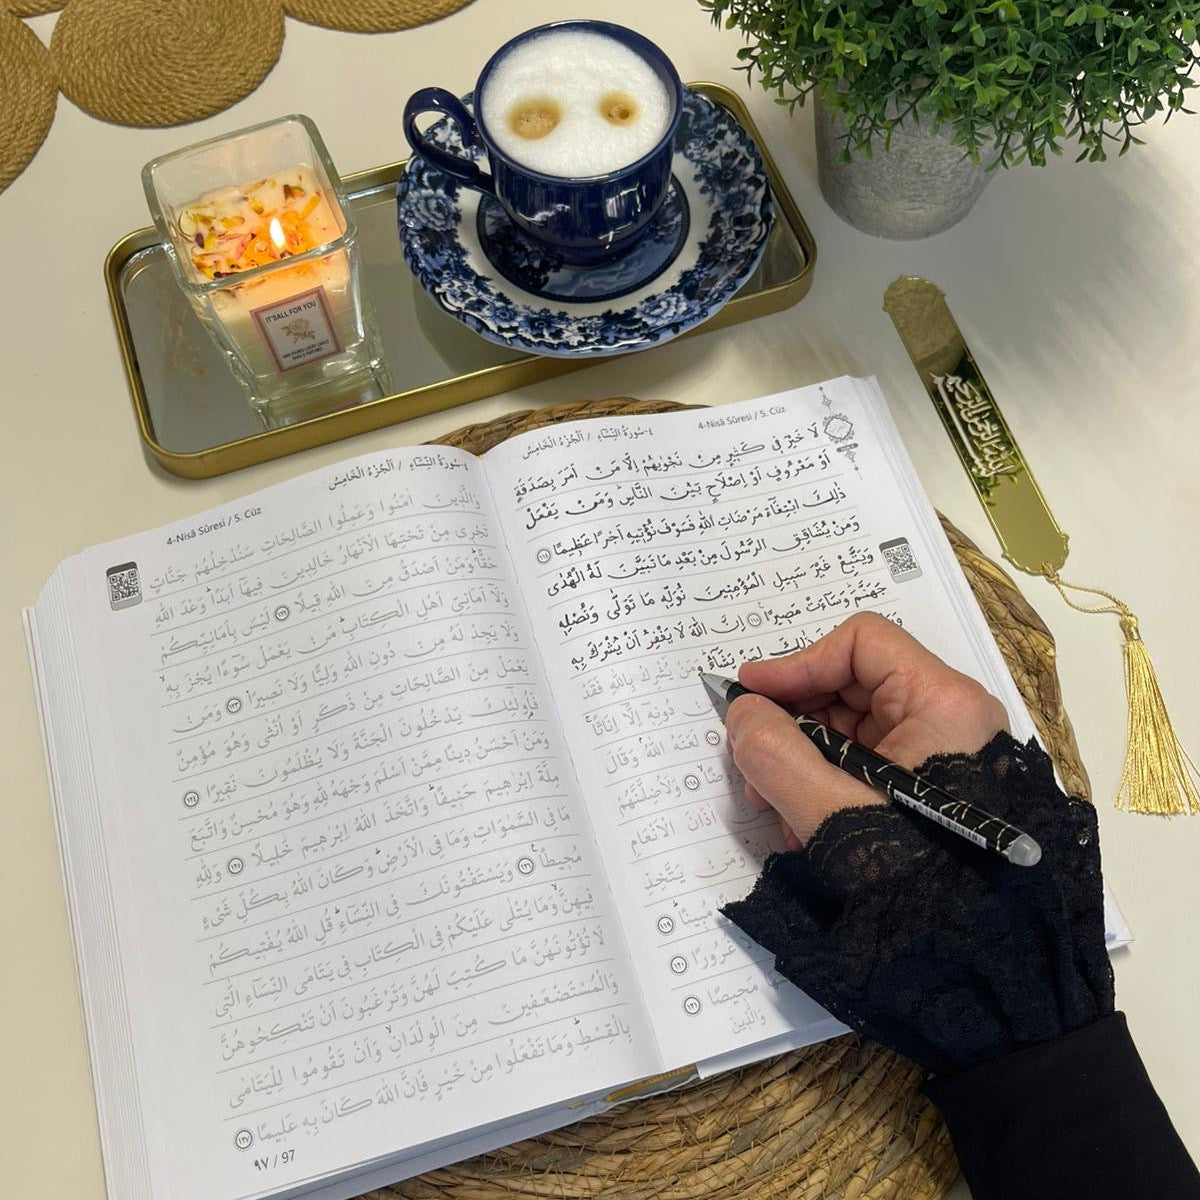 IT'S ALL FOR YOU
٤-سُورَةُ النِّسَاءِ / اَلْجُزْءُ الْخَامِسُ
4-Nisâ Sûresi / 5. Cüz
لَا خَيْرَ فٖى كَثٖيرٍ مِنْ نَجْوٰيهُمْ اِلَّا مَنْ اَمَرَ بِصَدَقَةٍ
اَوْ مَعْرُوفٍ اَوْ اِصْلَاحٍ بَيْنَ النَّاسِ وَمَنْ يَفْعَلْ
ذٰلِكَ ابْتِغَٓاءَ مَرْضَاتِ اللّٰهِ فَسَوْفَ نُؤْتٖيهِ اَجْرًا عَظٖيمًا ﴿١١٤﴾
وَمَنْ يُشَاقِقِ الرَّسُولَ مِنْ بَعْدِ مَا تَبَيَّنَ لَهُ الْهُدٰى
وَيَتَّبِعْ غَيْرَ سَبٖيلِ الْمُؤْمِنٖينَ نُوَلِّهٖ مَا تَوَلّٰى وَنُصْلِهٖ
جَهَنَّمَ وَسَٓاءَتْ مَصٖيرًا ﴿١١٥﴾ اِنَّ اللّٰهَ لَا يَغْفِرُ اَنْ يُشْرَكَ بِهٖ
ذٰلِكَ لِمَنْ يَشَٓاءُ وَمَنْ يُشْرِكْ بِاللّٰهِ فَقَدْ
دُونِهٖٓ اِلَّٓا اِنَاثًا
﴿١١٧﴾ لَعَنَهُ اللّٰهُ وَقَالَ
﴿١١٨﴾ وَلَاُضِلَّنَّهُمْ
اٰذَانَ الْاَنْعَامِ
وَمَنْ يَتَّخِذِ
مُبٖينًا ﴿١١٩﴾
غُرُورًا ﴿١٢٠﴾
مَحٖيصًا ﴿١٢١﴾
وَالَّذٖينَ
٤-سُورَةُ النِّسَاءِ / اَلْجُزْءُ الْخَامِسُ
4-Nisâ Sûresi / 5. Cüz
وَالَّذٖينَ اٰمَنُوا وَعَمِلُوا الصَّالِحَاتِ سَنُدْخِلُهُمْ جَنَّاتٍ
تَجْرٖى مِنْ تَحْتِهَا الْاَنْهَارُ خَالِدٖينَ فٖيهَٓا اَبَدًا وَعْدَ اللّٰهِ
حَقًّا وَمَنْ اَصْدَقُ مِنَ اللّٰهِ قٖيلًا ﴿١٢٢﴾ لَيْسَ بِاَمَانِيِّكُمْ
وَلَٓا اَمَانِيِّ اَهْلِ الْكِتَابِ مَنْ يَعْمَلْ سُٓوءًا يُجْزَ بِهٖ
وَلَا يَجِدْ لَهُ مِنْ دُونِ اللّٰهِ وَلِيًّا وَلَا نَصٖيرًا ﴿١٢٣﴾ وَمَنْ
يَعْمَلْ مِنَ الصَّالِحَاتِ مِنْ ذَكَرٍ اَوْ اُنْثٰى وَهُوَ مُؤْمِنٌ
فَاُولٰٓئِكَ يَدْخُلُونَ الْجَنَّةَ وَلَا يُظْلَمُونَ نَقٖيرًا ﴿١٢٤﴾
وَمَنْ اَحْسَنُ دٖينًا مِمَّنْ اَسْلَمَ وَجْهَهُ لِلّٰهِ وَهُوَ مُحْسِنٌ وَاتَّبَعَ
مِلَّةَ اِبْرٰهٖيمَ حَنٖيفًا وَاتَّخَذَ اللّٰهُ اِبْرٰهٖيمَ خَلٖيلًا ﴿١٢٥﴾ وَلِلّٰهِ
مَا فِى السَّمٰوَاتِ وَمَا فِى الْاَرْضِ وَكَانَ اللّٰهُ بِكُلِّ شَىْءٍ
مُحٖيطًا ﴿١٢٦﴾ وَيَسْتَفْتُونَكَ فِى النِّسَٓاءِ قُلِ اللّٰهُ يُفْتٖيكُمْ
فٖيهِنَّ وَمَا يُتْلٰى عَلَيْكُمْ فِى الْكِتَابِ فٖى يَتَامَى النِّسَٓاءِ الّٰتٖى
لَا تُؤْتُونَهُنَّ مَا كُتِبَ لَهُنَّ وَتَرْغَبُونَ اَنْ تَنْكِحُوهُنَّ
وَالْمُسْتَضْعَفٖينَ مِنَ الْوِلْدَانِ وَاَنْ تَقُومُوا لِلْيَتَامٰى
بِالْقِسْطِ وَمَا تَفْعَلُوا مِنْ خَيْرٍ فَاِنَّ اللّٰهَ كَانَ بِهٖ عَلٖيمًا ﴿١٢٧﴾
٩٧ / 97